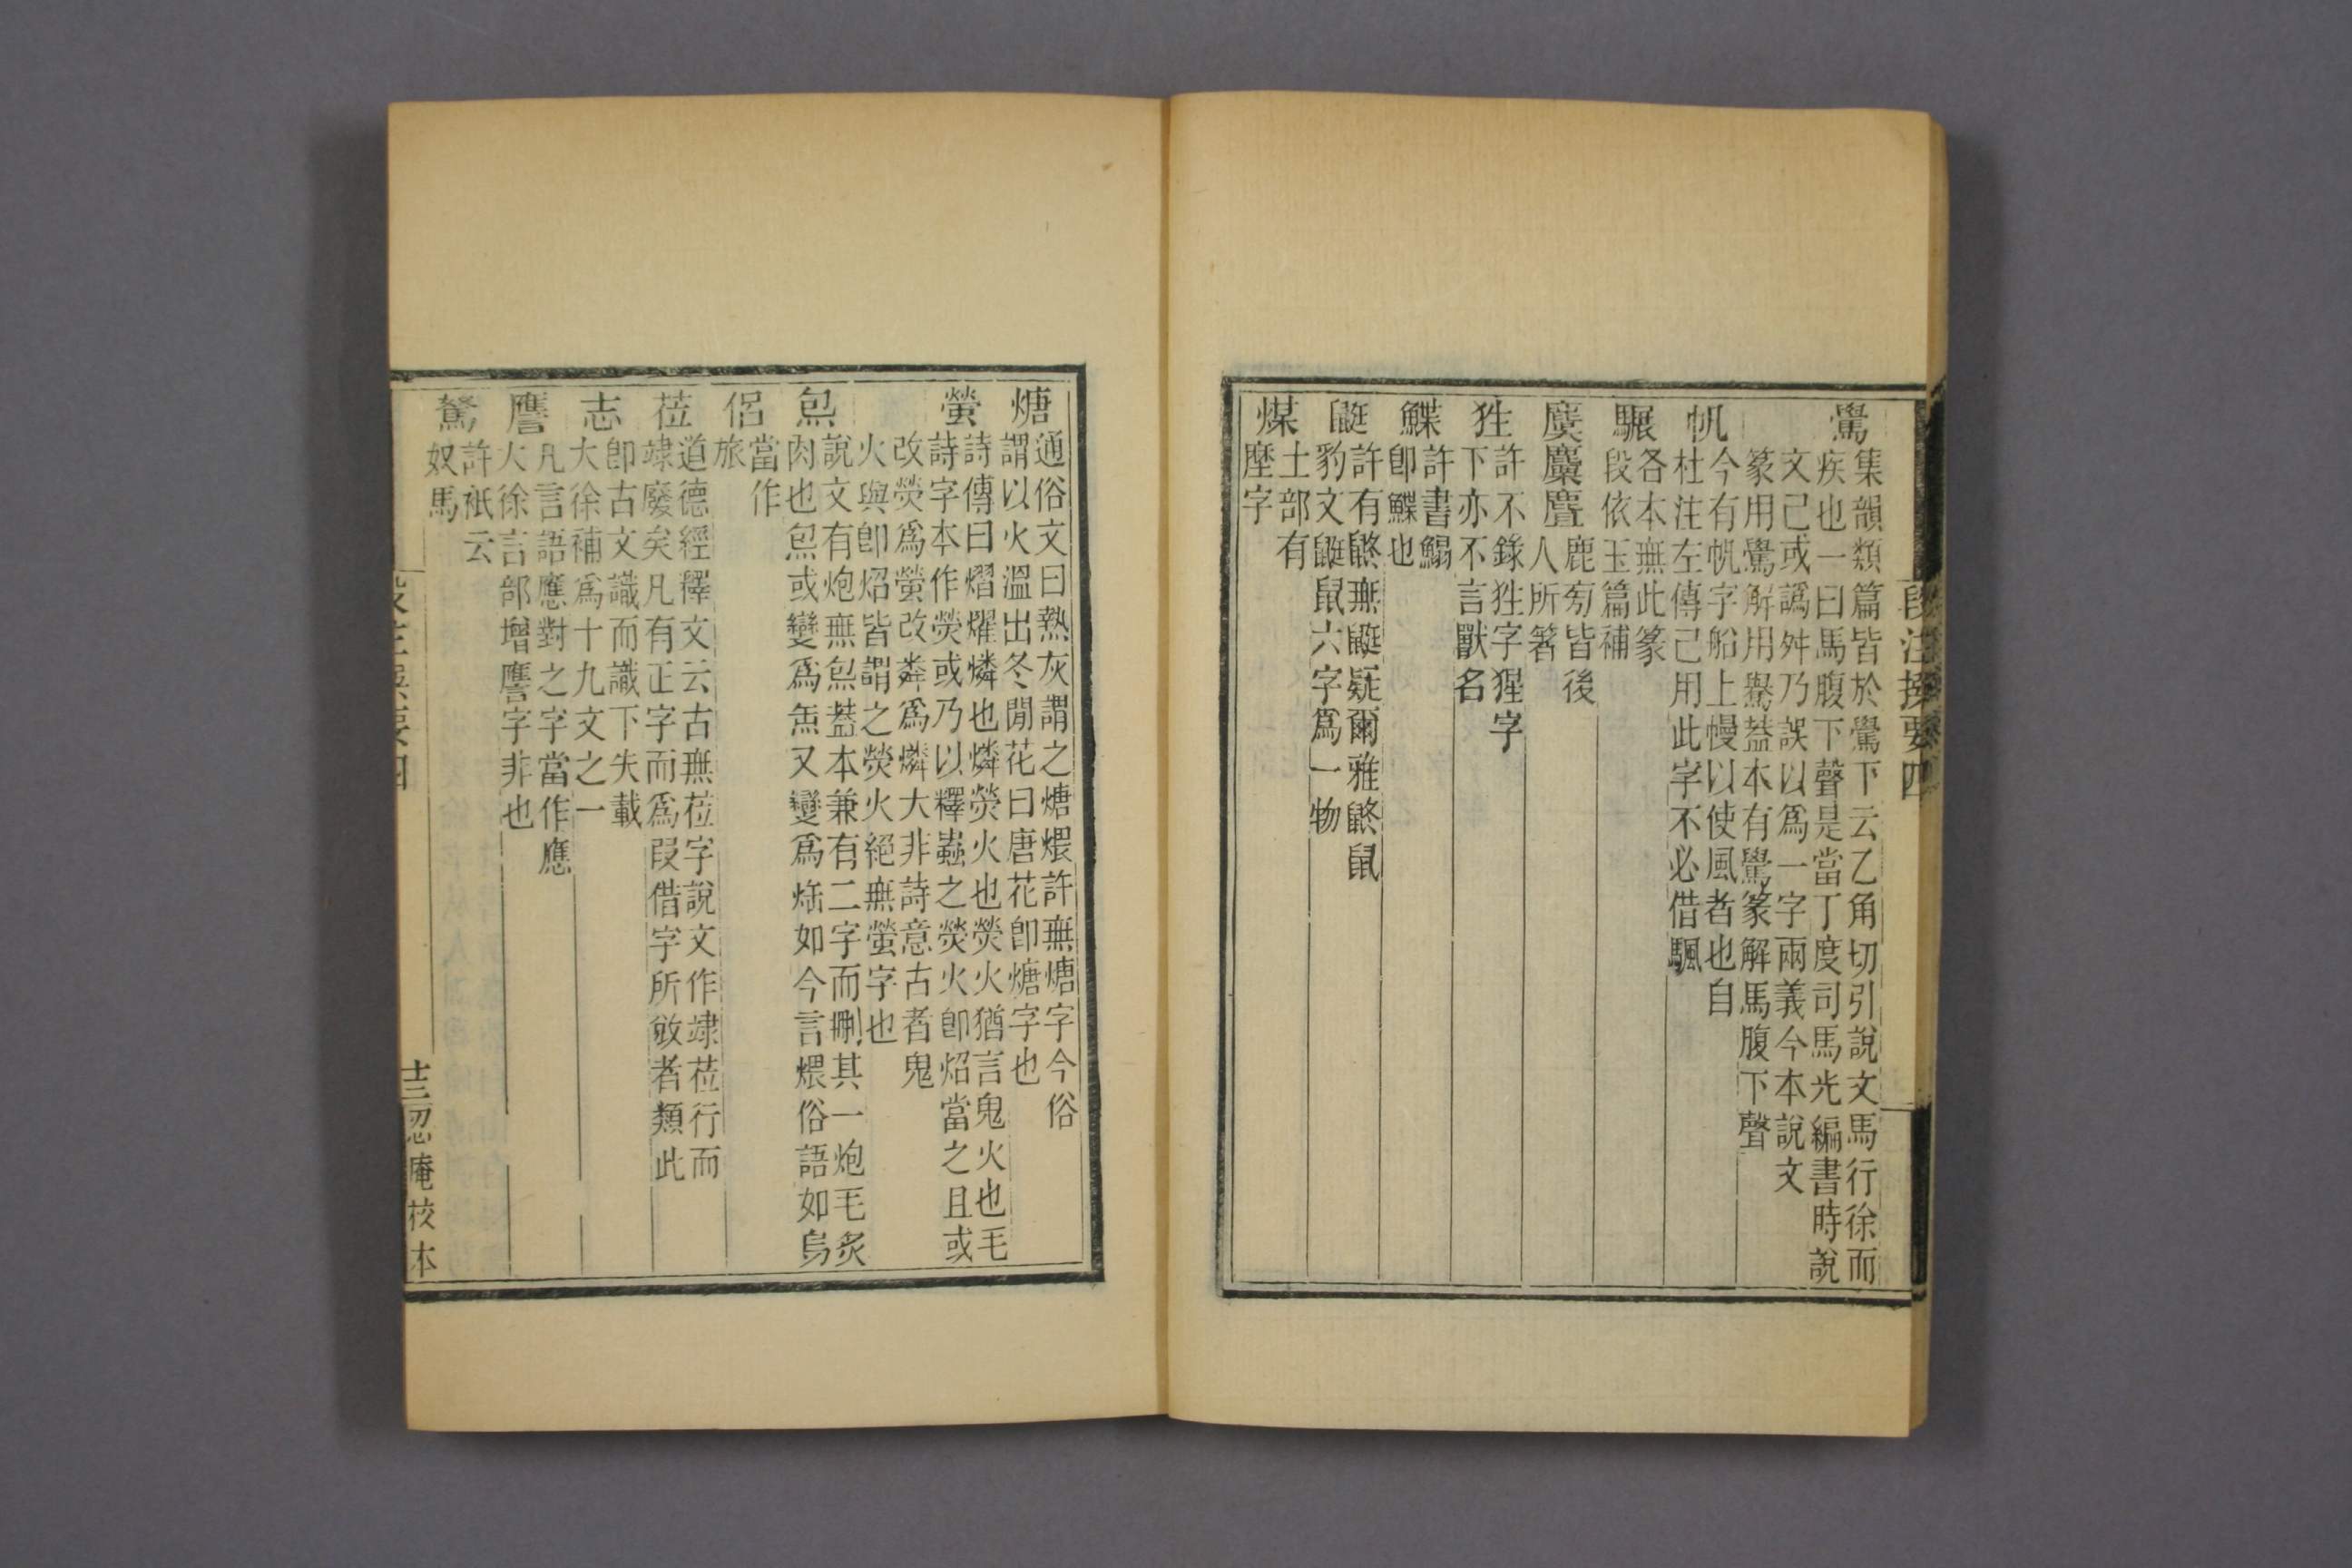 段注撰要四
鷽
集韻類篇皆於鷽下云乙角切引說文馬行徐而
疾也一曰馬腹下聲是當丁度司馬光編書時說
文己或譌舛乃誤以爲一字兩義今本說文
篆用鷽解用舉葢本有鷽篆解馬腹下聲
帆
今有帆字船上幔以使風者也自
杜注左傳己用此字不必借颿
騪
各本無此篆
段依玉篇補
麌麋麆
鹿㓞皆後
人所箸
狌
許不錄狌字猩字
下亦不言獸名
鰈
許書鰨
卽鰈也
鼮
許有鼨無鼮疑爾雅鼨鼠
豹文鼮鼠六字爲一物
煤
土部有
塺字
煻
通俗文曰熱灰謂之煻煨許無煻字今俗
謂以火溫出冬閒花曰唐花卽煻字也
螢
詩傳曰熠燿燐也燐熒火也熒火猶言鬼火也毛
詩字本作熒或乃以釋蟲之熒火卽炤當之且或
改熒爲螢改粦爲燐大非詩意古者鬼
火與卽炤皆謂之熒火絕無螢字也
炰
說文有炮無炰葢本兼有二字而刪其一炮毛炙
肉也炰或變爲缹又變爲𤉬如今言煨俗語如烏
侣
當作
旅
莅
道德經釋文云古無莅字說文作竦莅行而
竦廢矣凡有正字而爲叚借字所敓者類此
志
卽古文識而識下失載
大徐補爲十九文之一
譍
凡言語應對之字當作應
大徐言部增譍字非也
駑
許衹云
奴馬
十三
忍庵校本